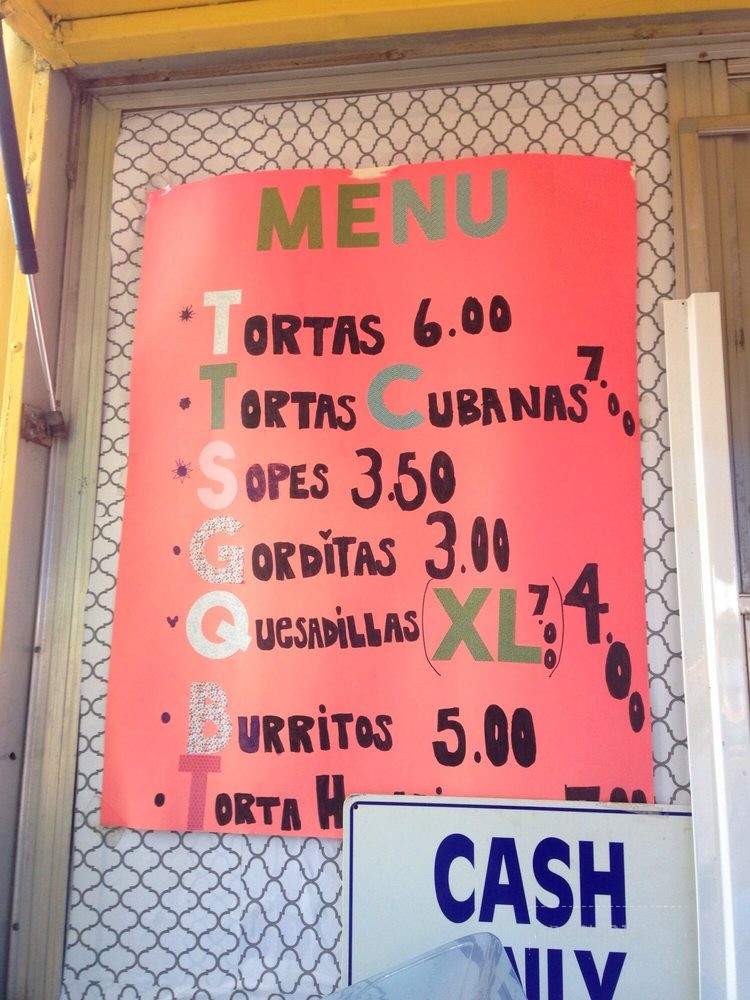 MENU
TORTAS 6.00
TORTAS CUBANAS 7.00
SOPES 3.50
GORDITAS 3.00
QUESADILLAS (XL 7.00) 4.00
BURRITOS 5.00
TORTA
CASH
ONLY